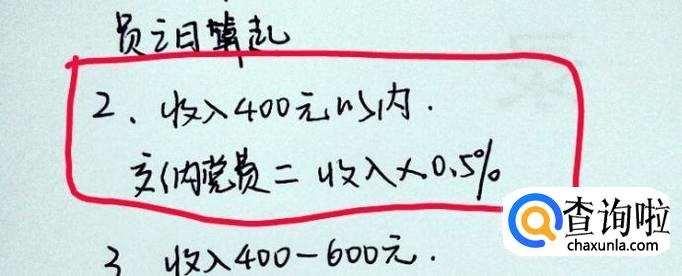 员之日算起
2、收入400元以内.
交纳党员=收入×0.5%
3 收入400-600元.
查询啦
chaxunla.com